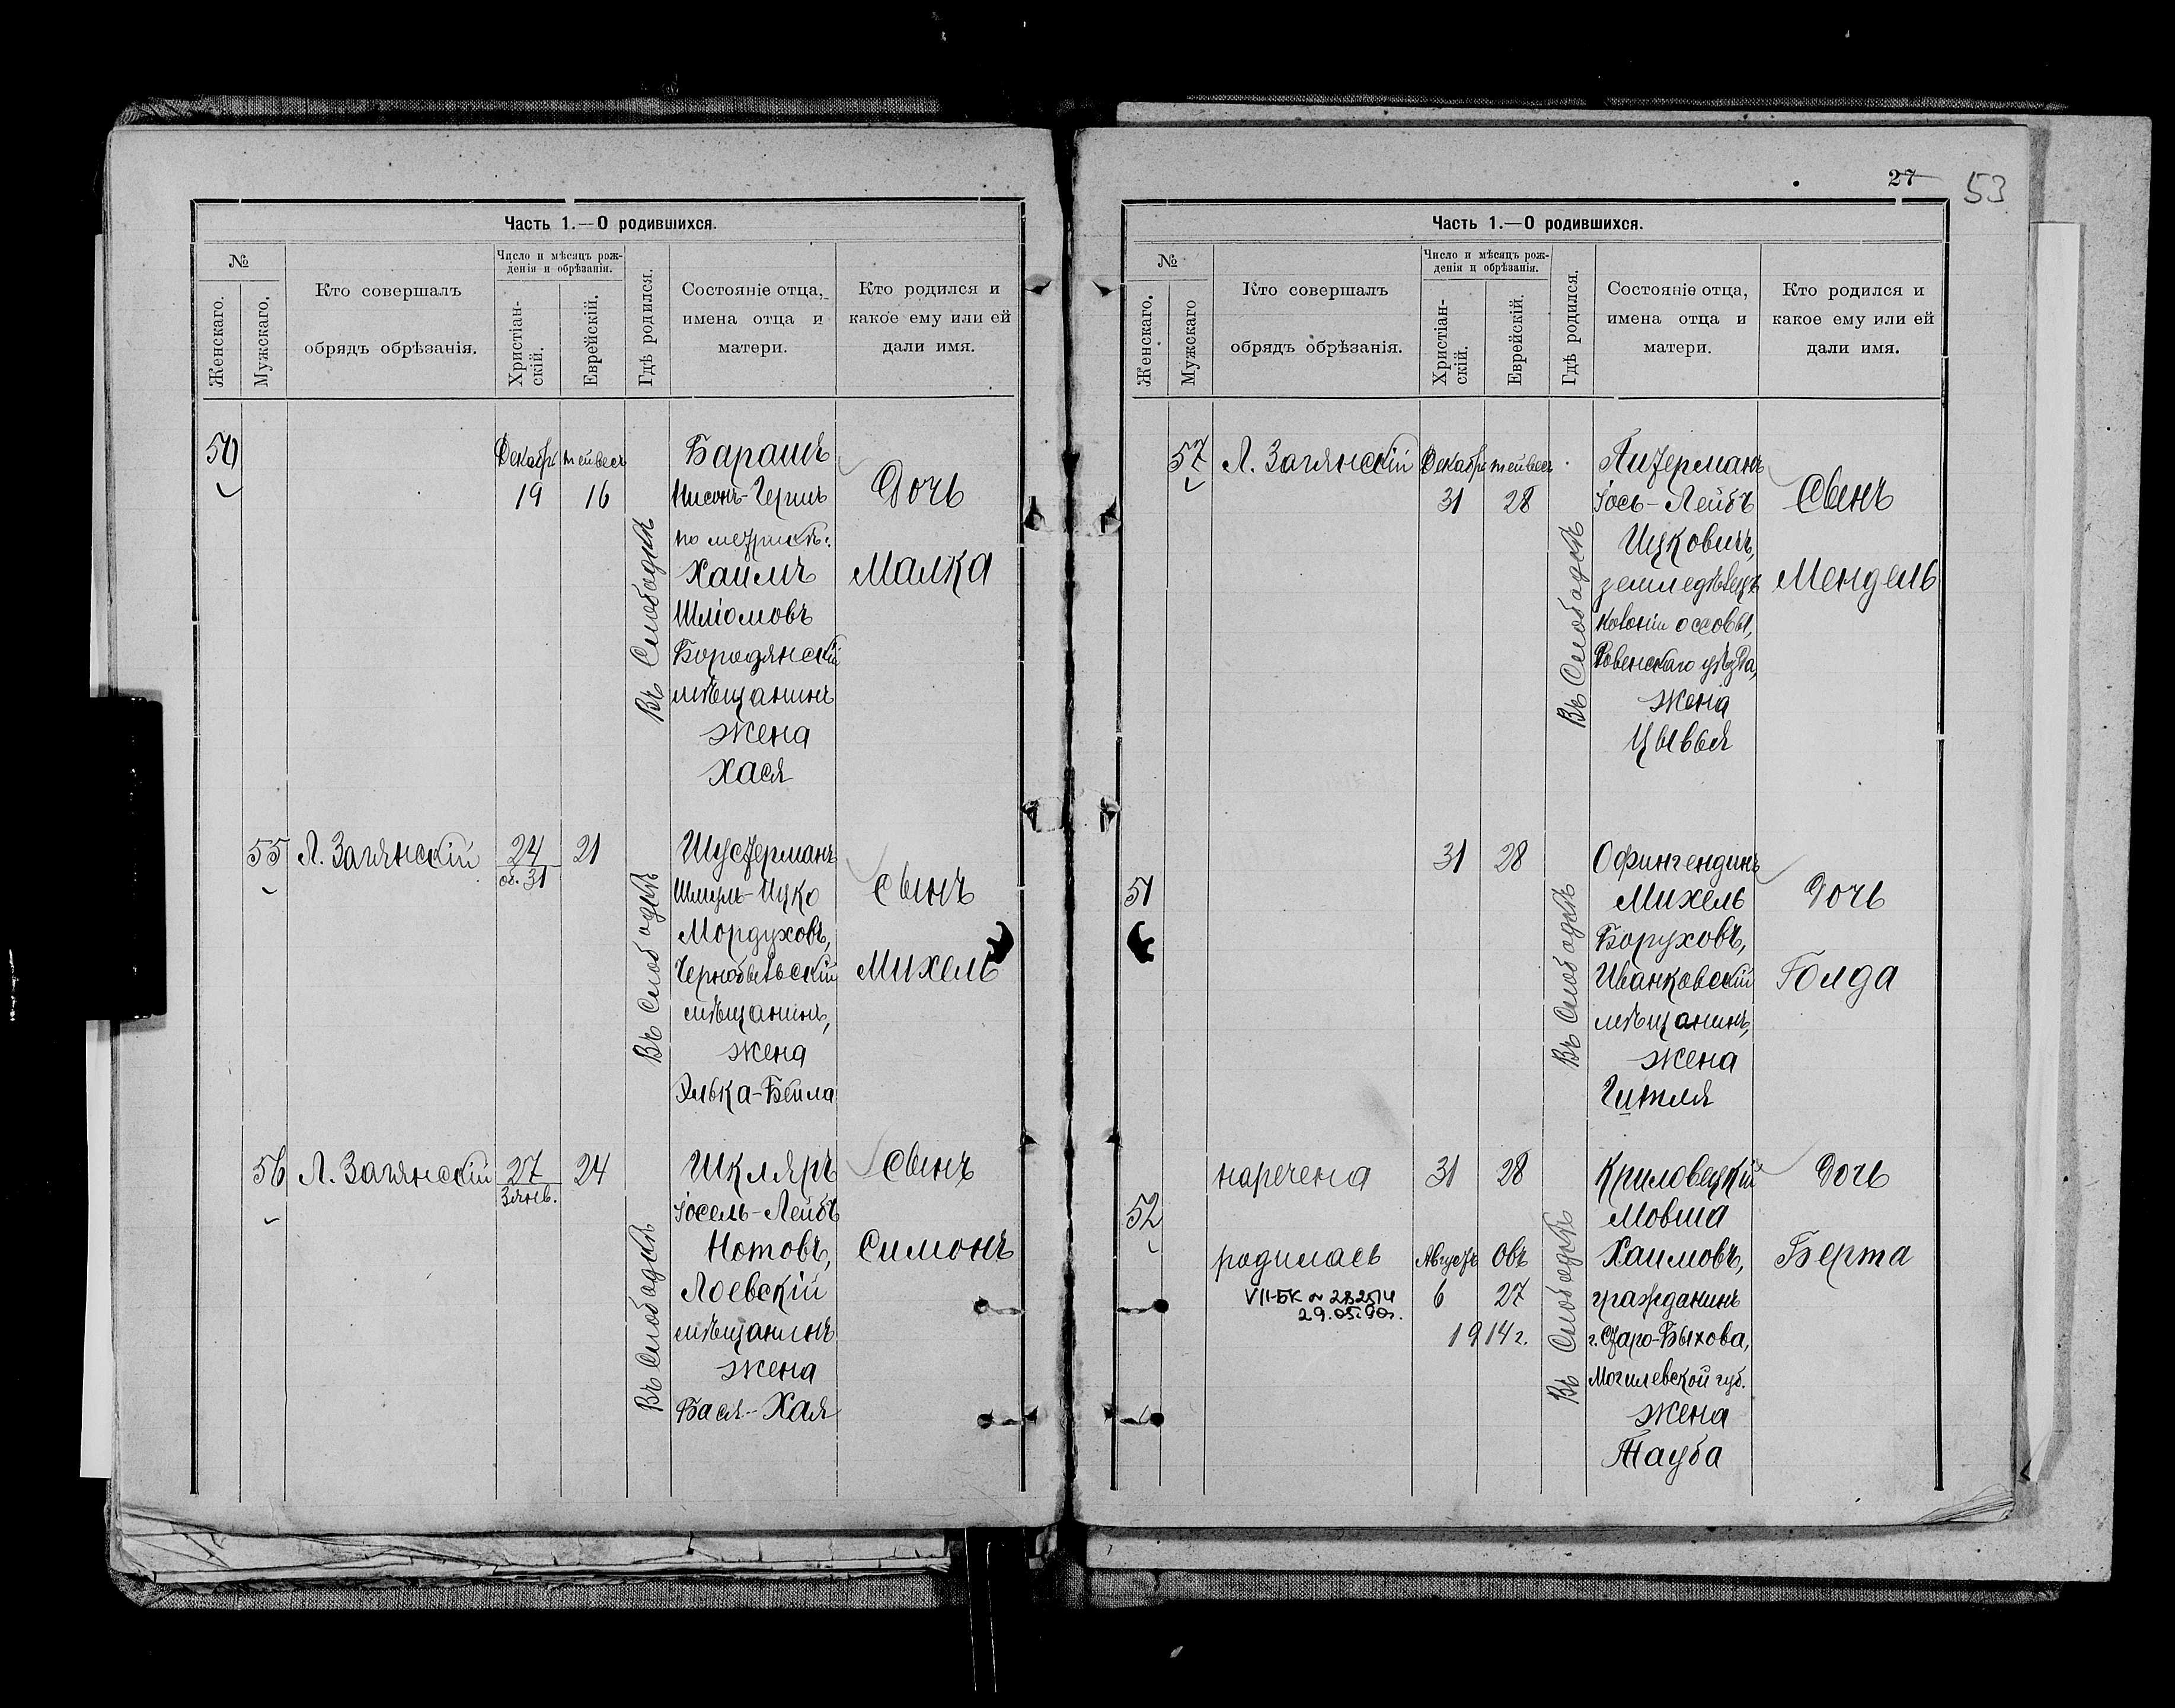 Часть 1.—О родившихся.
№
Женскаго.
Мужскаго.
Кто совершалъ
обрядъ обрѣзанія.
Число и мѣсяцъ рож-
денія и обрѣзанія.
Христіан-
скій.
Еврейскій.
Гдѣ родился.
Состояніе отца,
имена отца и
матери.
Кто родился и
какое ему или ей
дали имя.
50
Декабрь тейвесъ
19 16
Въ Слободкѣ
Барашъ
Нисонъ-Гершъ
по метрикѣ:
Хаимъ
Шліомовъ
Бородянскій
мѣщанинъ
жена
Хася
Дочь
Малка
55 Л. Загянскій 24 21
об. 31
Въ Слободкѣ
Шустерманъ
Шмуль-Ицко
Мордуховъ,
Чернобыльскій
мѣщанинъ,
жена
Элька-Бейла
Сынъ
Михель
56 Л. Загянскій 27 24
3 янв.
Въ Слободкѣ
Шкляръ
Іосель-Лейбъ
Нотовъ,
Лоевскій
мѣщанинъ
жена
Бася-Хая
Сынъ
Симонъ
27 53
Часть 1.—О родившихся.
№
Женскаго.
Мужскаго
Кто совершалъ
обрядъ обрѣзанія.
Число и мѣсяцъ рож-
денія и обрѣзанія.
Христіан-
скій.
Еврейскій.
Гдѣ родился.
Состояніе отца,
имена отца и
матери.
Кто родился и
какое ему или ей
дали имя.
57 Л. Загянскій Декабрь тейвесъ
31 28
Въ Слободкѣ
Питерманъ
Іось-Лейбъ
Ицковичъ,
земледѣлецъ
колоніи Оссовы,
Ровенскаго уѣзда,
жена
Цывья
Сынъ
Мендель
51
31 28
Въ Слободкѣ
Офингендинъ
Михель
Боруховъ,
Иванковскій
мѣщанинъ,
жена
Гитля
Дочь
Голда
52
наречена 31 28
родилась Августъ Овъ
6 27
1914 г.
VII-БК № 282514
29.05.90г.
Въ Слободкѣ
Криловецкій
Мовша
Хаимовъ,
гражданинъ
г. Старо-Быхова,
Могилевской губ.
жена
Тауба
Дочь
Берта